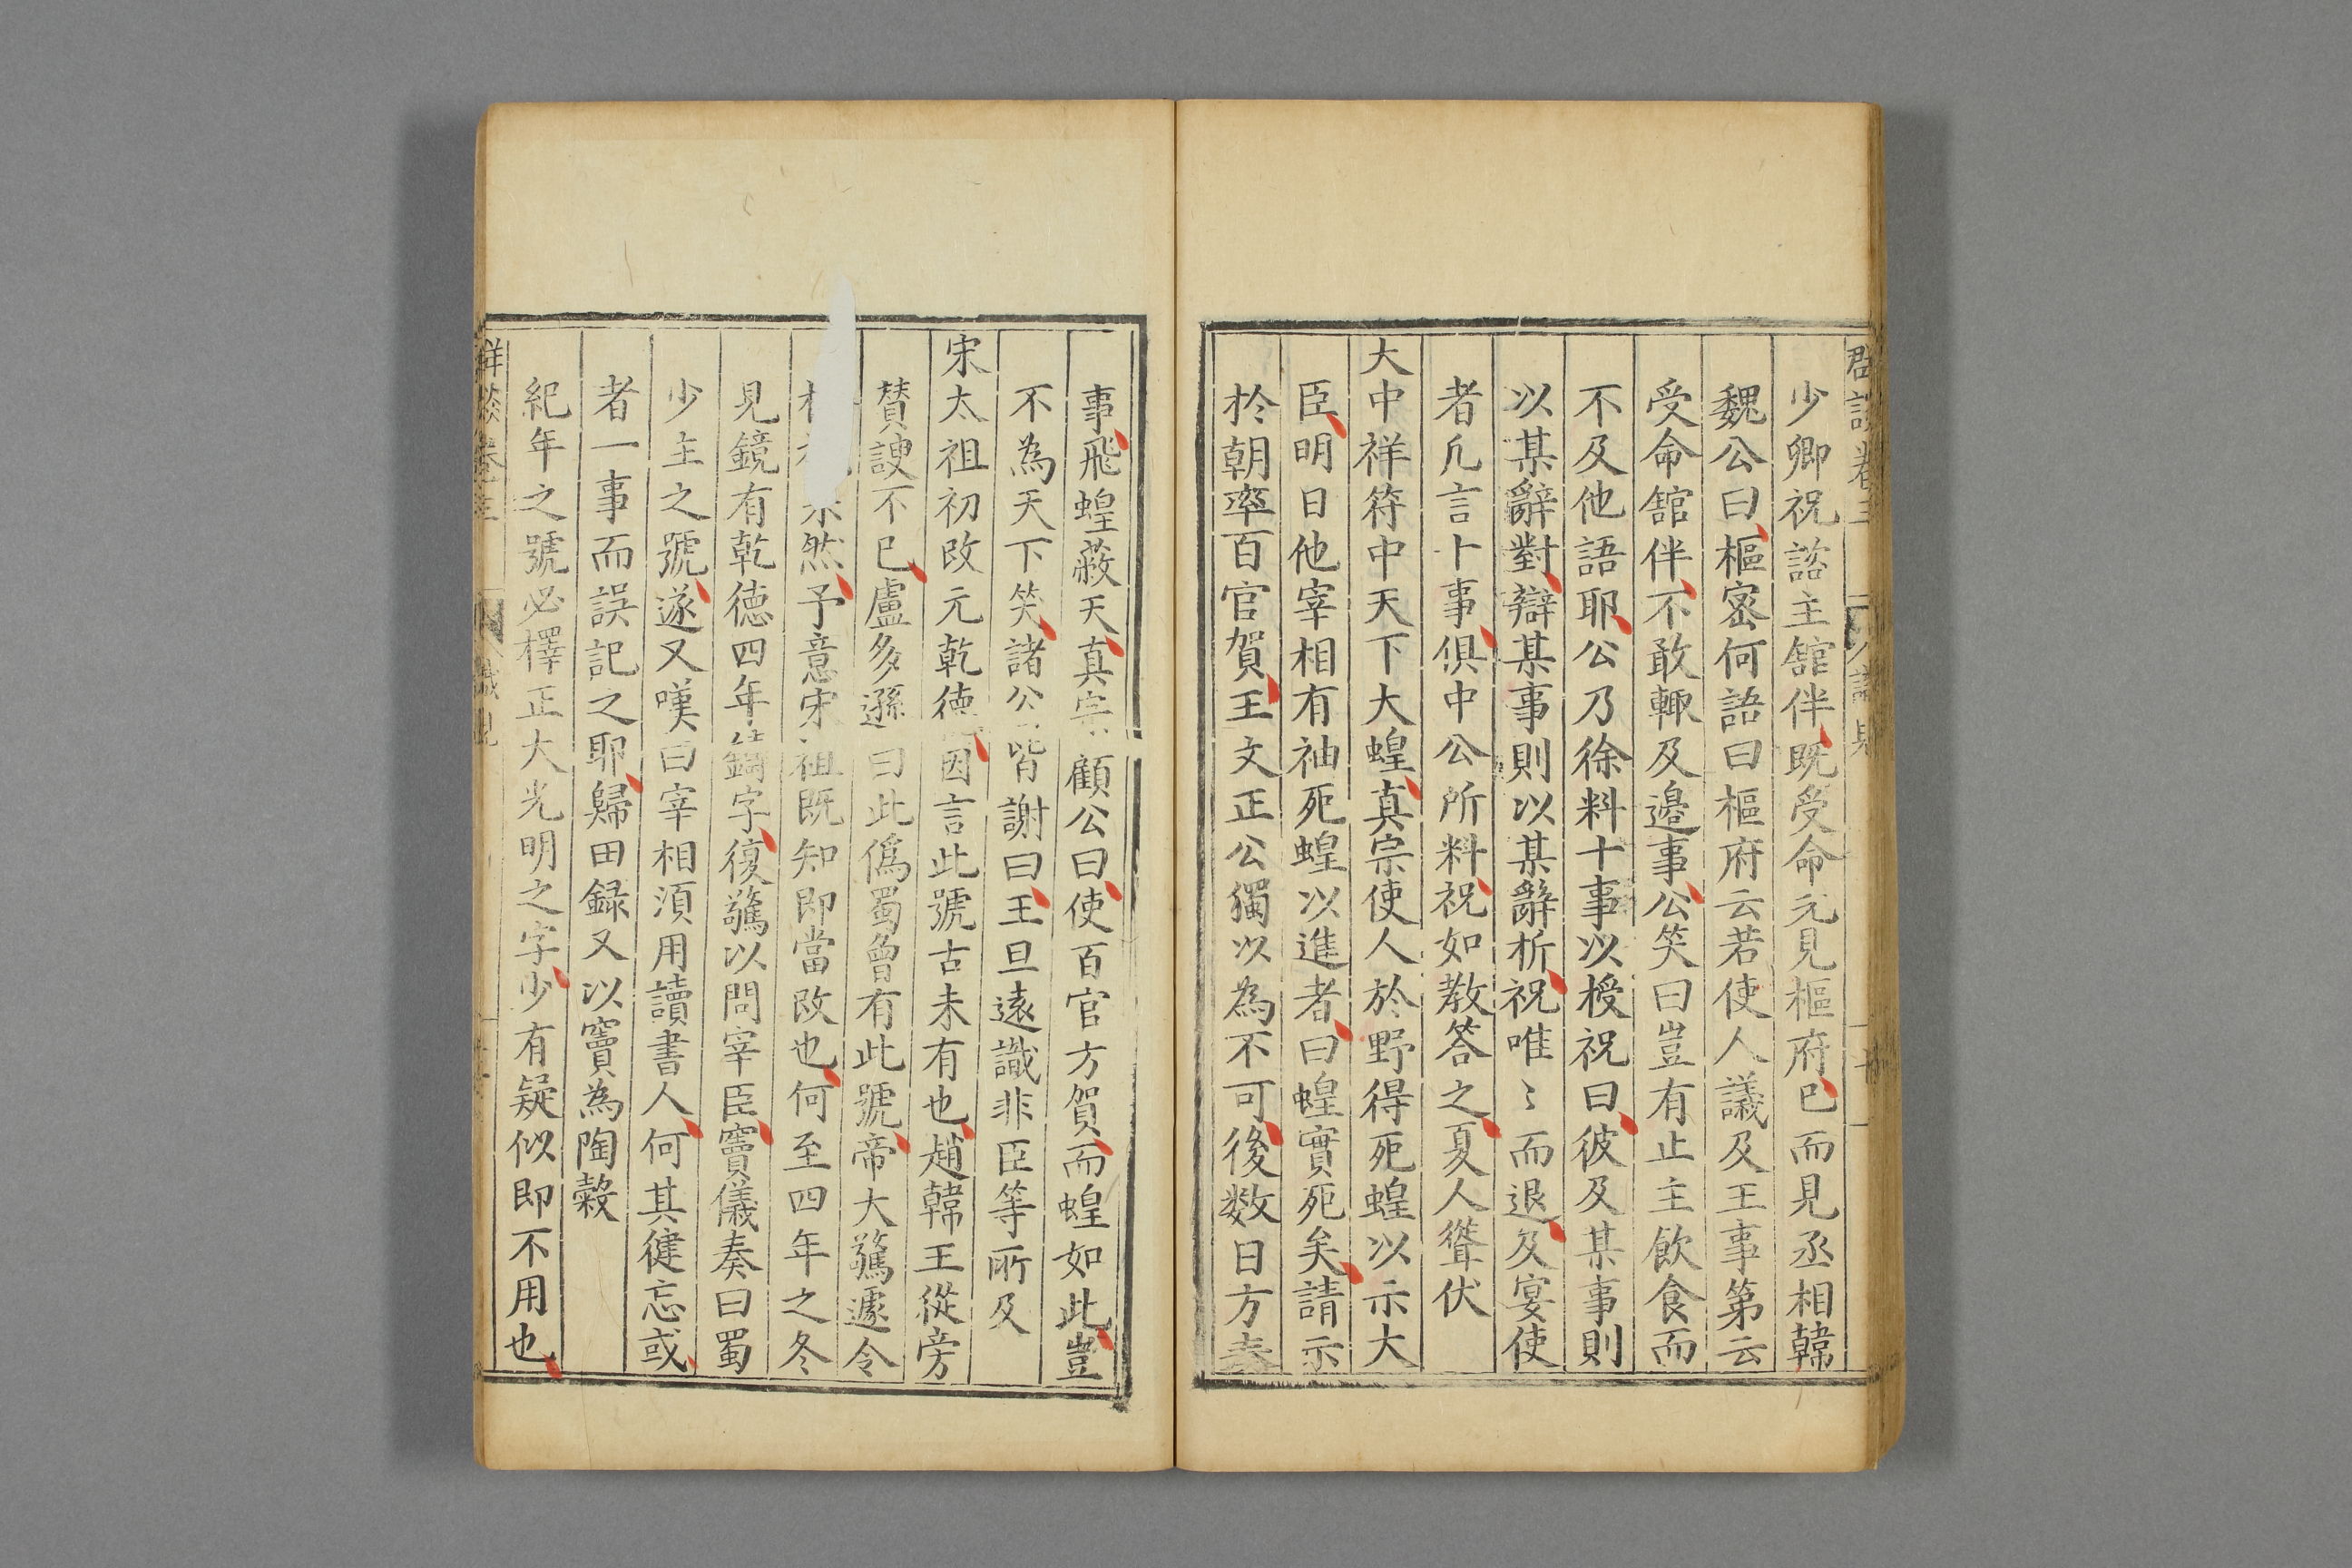 少卿祝諮主舘伴既受命元見樞府已而見丞相韓
魏公曰樞宻何語曰樞府云若使人議及王事第云
受命舘伴不敢輙及邉事公笑曰豈有止主飲食而
不及他語耶公乃徐料十事以授祝曰彼及某事則
以某辭對辯某事則以某辭析祝唯〻而退及宴使
者凡言卜事俱中公所料祝如教答之夏人聳伏
大中祥符中天下大蝗真宗使人於野得死蝗以示大
臣明日他宰相有袖死蝗以進者曰蝗實死矣請示
於朝率百官賀王文正公獨以為不可後数日方奏
事飛蝗蔽天真宗顧公曰使百官方賀而蝗如此豈
不為天下笑諸公皆謝曰王旦遠識非臣等所及
宋太祖初改元乾徳因言此號古未有也趙韓王從旁
賛諛不已盧多遜曰此僞蜀曾有此號帝大驚遽令
然予意宋祖既知即當改也何至四年之冬
見鏡有乾徳四年鑄字復驚以問宰臣竇儀奏曰蜀
少主之號遂又嘆曰宰相須用讀書人何其健忘或
者一事而誤記之耶歸田録又以竇為陶穀
紀年之號必擇正大光明之字少有疑似即不用也